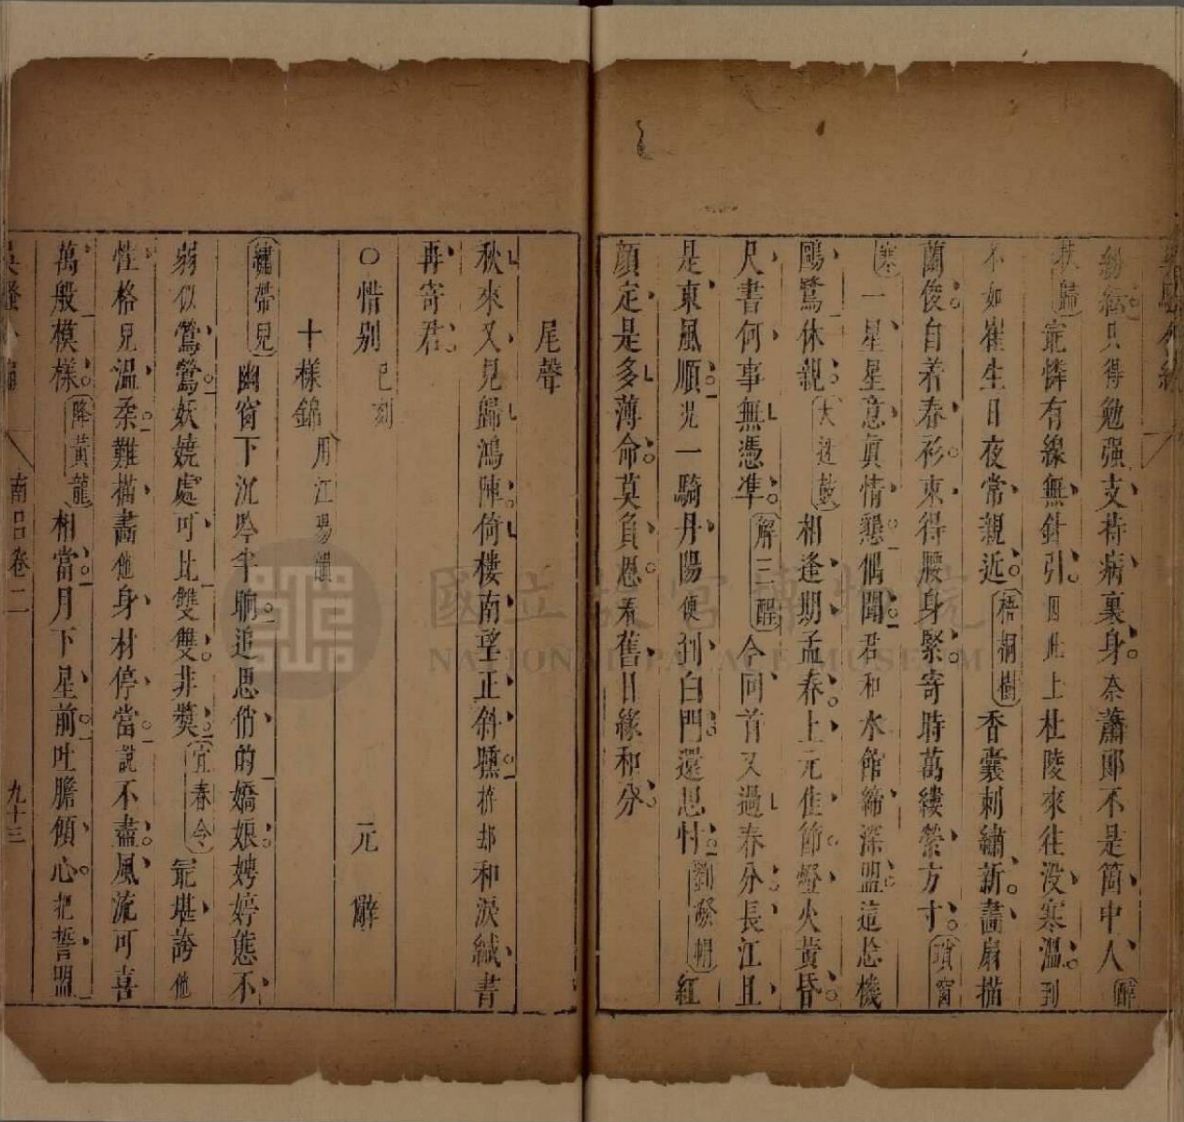 紛紜只得勉强支持病裏身奈蕭郎不是箇中人醉
扶歸寵憐有線無針引因此上杜陵來往没寒溫到
不如崔生日夜常親近梧桐樹香囊刺繡新畵扇描
蘭俊自着春衫束得腰身緊寄時萬縷縈方寸瑣窗
寒一星星意眞情懇偶聞君和水館締深盟這忘機
鷗鷺休親大迓鼓相逢期孟春上元佳節燈火黃昏
尺書何事無憑準解三酲今回首又過春分長江且
是東風順况一騎丹陽便到白門還思忖劉潑帽紅
顔定是多薄命莫負恩看舊日緣和分
尾聲
秋來又見歸鴻陣倚樓南望正斜曛拚却和淚緘書
再寄君
○惜别 已刻 元 辭
十樣錦 用江陽韻
繡帶兒幽窗下沉吟半晌追思俏的嬌娘娉婷態不
弱似鶯鶯妖嬈處可比雙雙非奬宜春令寵堪誇他
性格兒溫柔難描畵他身材停當說不盡風流可喜
萬般模樣降黃龍相當月下星前吐膽傾心把誓盟
南呂卷二 九十三
國立故宮博物院
NATIONAL PALACE MUSEUM